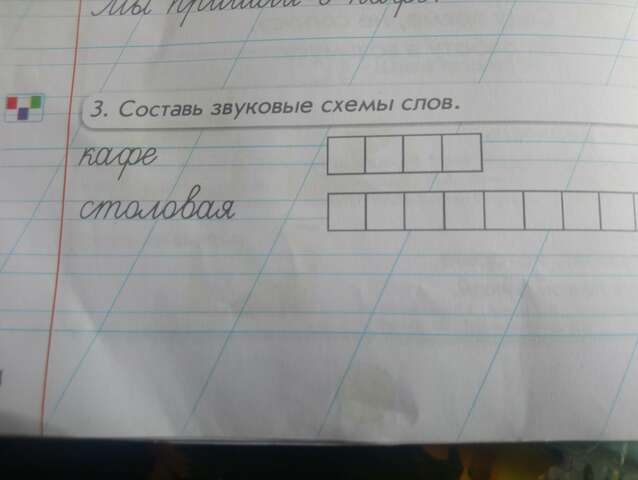 Мы пришли в кафе.
3. Составь звуковые схемы слов.
кафе
столовая